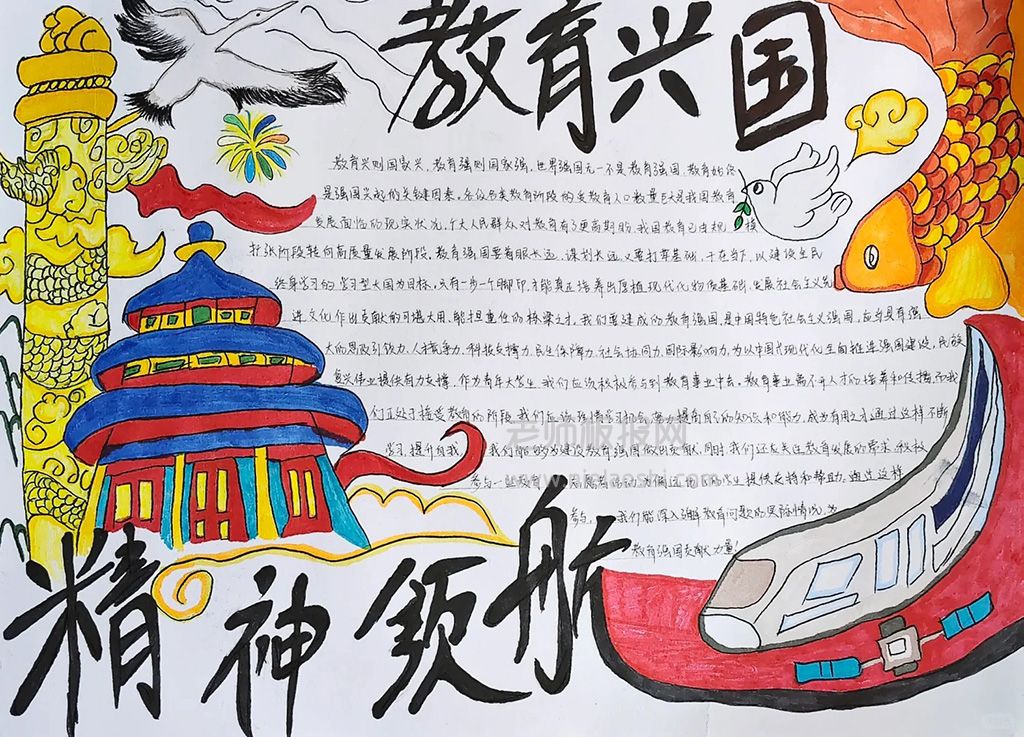 教育兴国
教育兴则国家兴，教育强则国家强，世界强国无一不是教育强国，教育始终
是强国兴起的关键因素。各级各类教育阶段的类教育人口数量巨大是我国教育
发展面临的现实状况，广大人民群众对教育有了更高期盼，我国教育已由规模
扩张阶段转向高质量发展阶段，教育强国要着眼长远，谋划长远又要打牢基础，干在当下，以建设全民
终身学习的学习型大国为目标，只有一步一个脚印，才能真正培养出厚植现代化物质基础，发展社会主义先
进文化作出贡献的可堪大用，能担重任的栋梁之才，我们要建成的教育强国，是中国特色社会主义强国，应当具有强
大的思政引领力，人才竞争力，科技支撑力，民生保障力，社会协同力，国际影响力，为以中国式现代化全面推进强国建设，民族
复兴伟业提供有力支撑，作为青年大学生，我们应该积极参与到教育事业中去，教育事业离不开人才的培养和传播，而我
们正处于接受教育的阶段，我们应该珍惜学习机会，努力提高自己的知识和能力，成为有用之才，通过这样不断
学习，提升自我，我们能够为建设教育强国做出贡献，同时，我们还应关注教育发展的需求，积极
参与一些教育 提供支持和帮助，通过这样
参与，我们能深入理解教育问题的实际情况，为
教育强国贡献力量！
老师板报网
精神领航